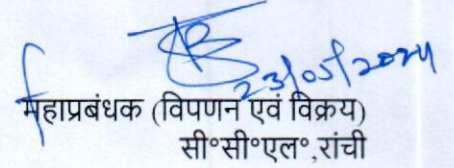 23/05/2024
महाप्रबंधक (विपणन एवं विक्रय)
सी°सी°एल°,रांची